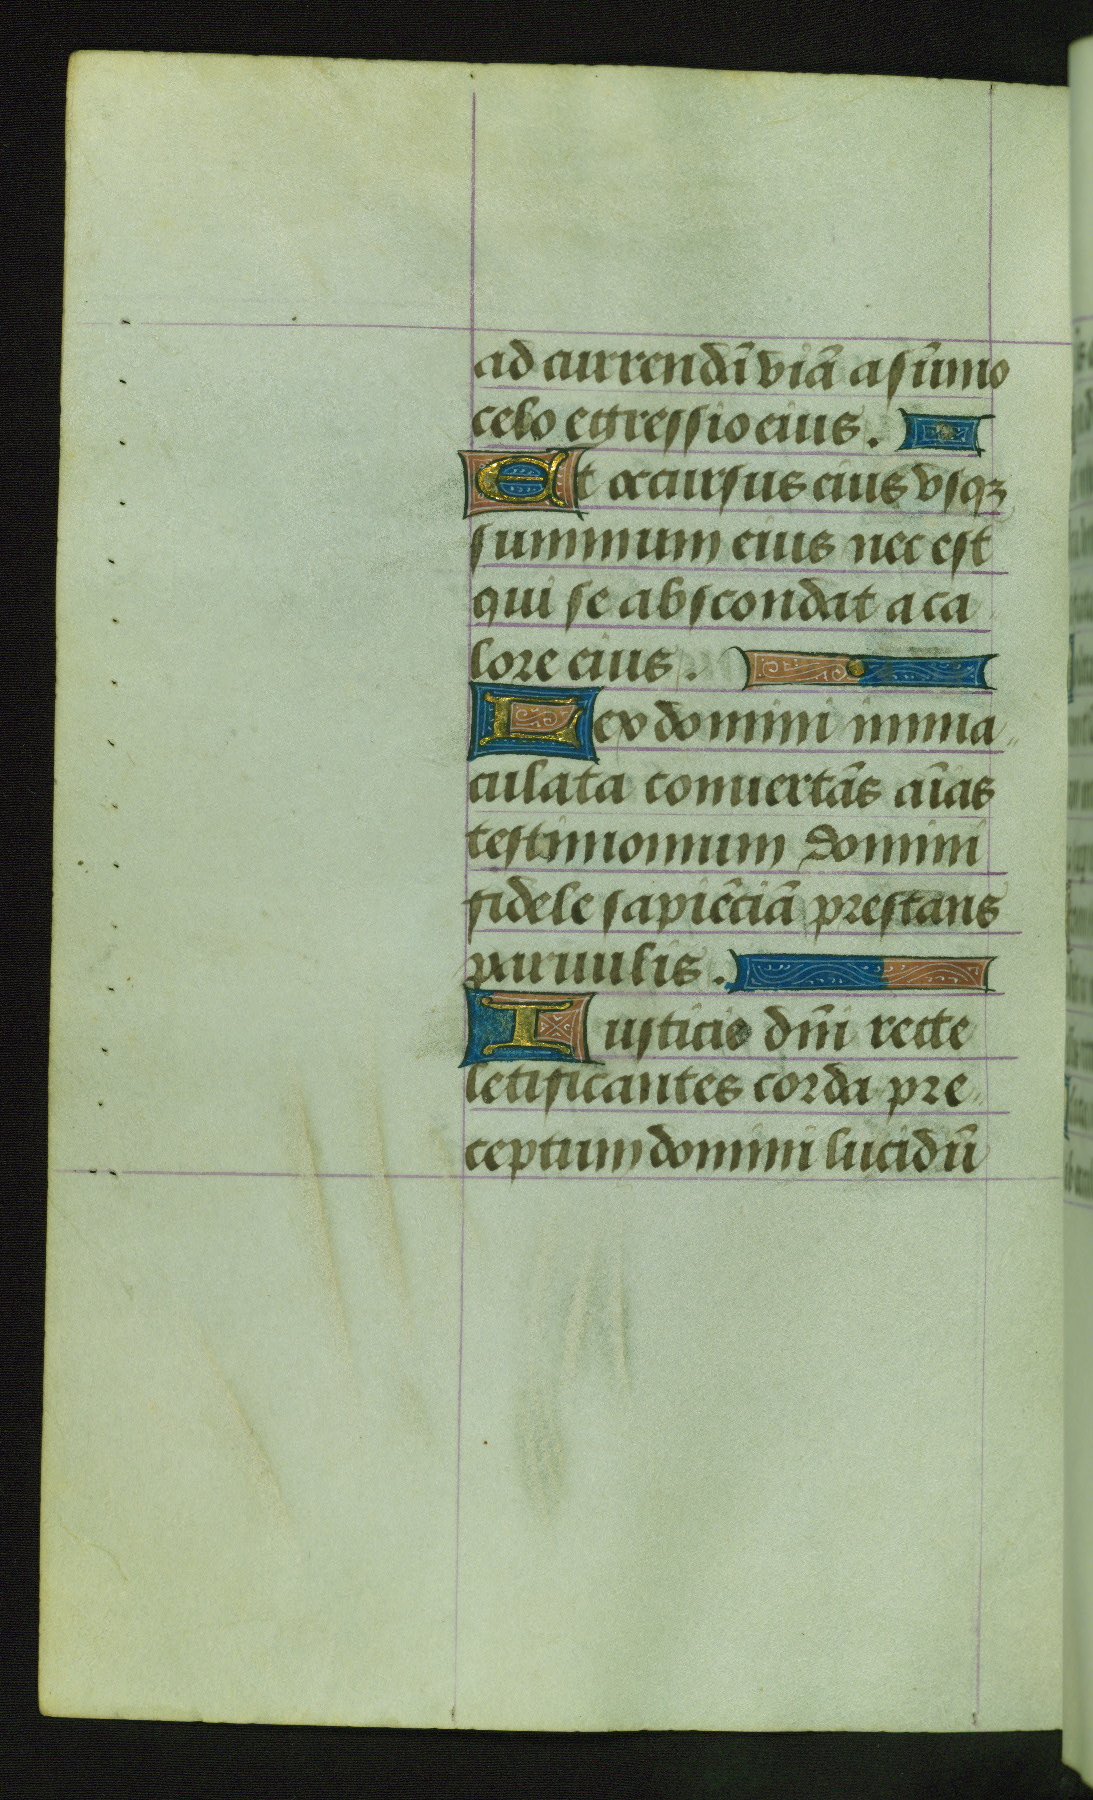 ad currendā viā a sūmo
celo egressio eius.
Et occursus eius vsqꝫ
summum eius nec est
qui se abscondat a ca
lore eius.
Lex domini imma
culata conuertās aīas
testimonium domini
fidele sapiēciā prestans
paruulis.
Iusticie dn̄i recte
letificantes corda pre
ceptum domini lucidū